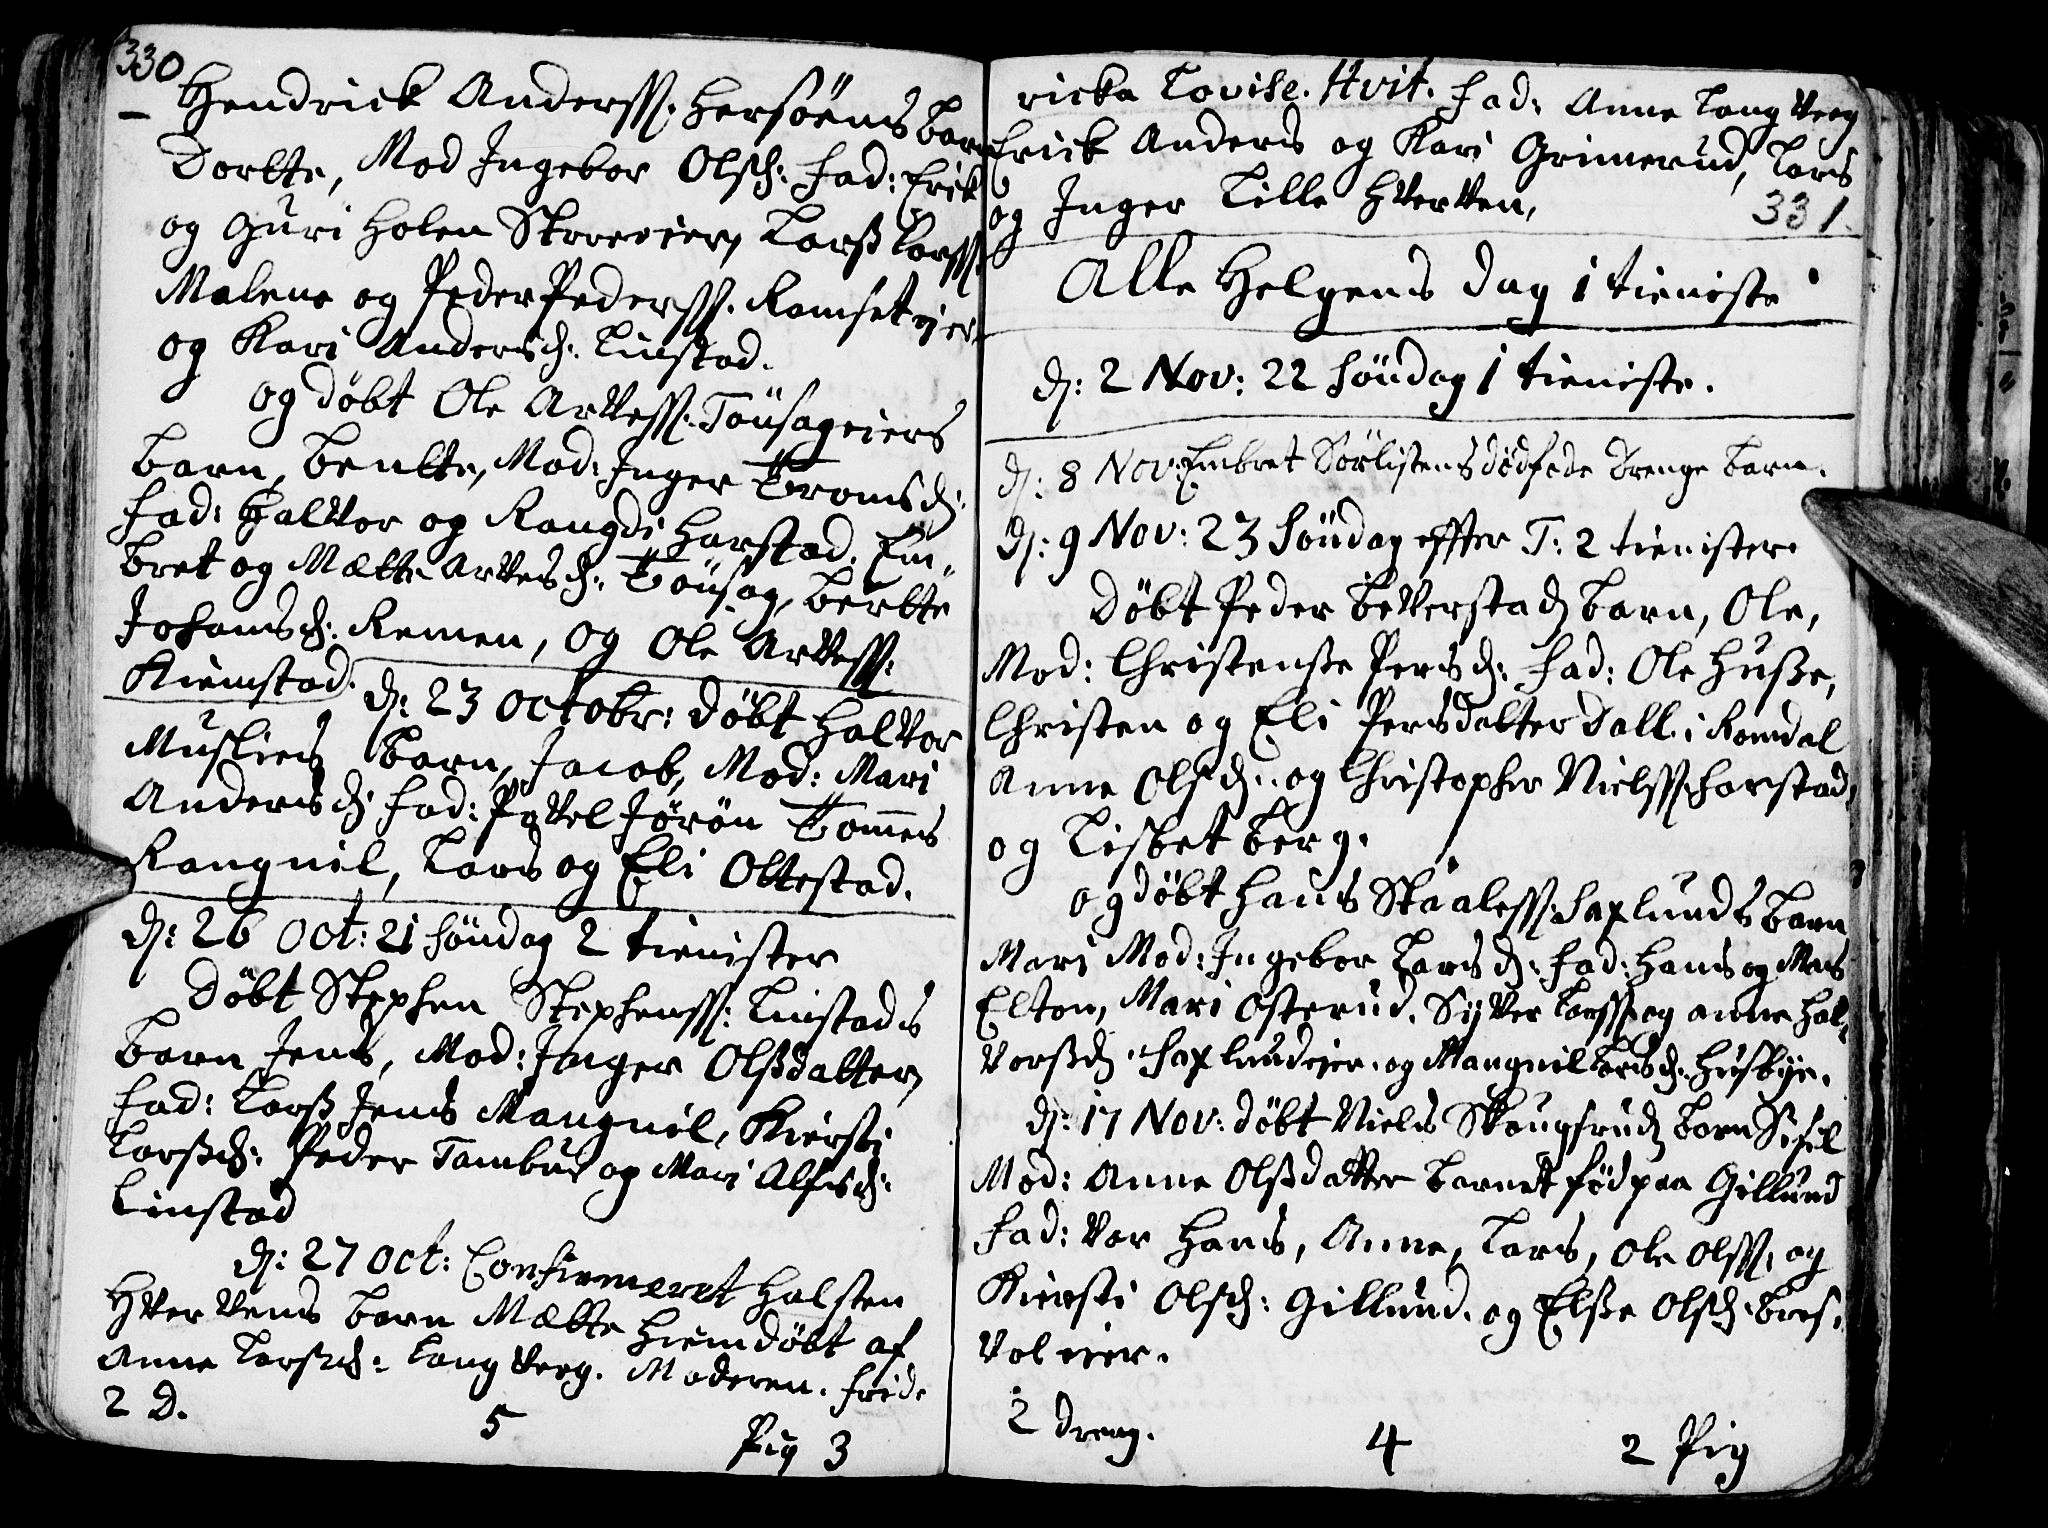 330
Hendrick Anderss: Hersöens barn
Dorthe, Mod Ingebor Olsd: fad: Erick
og Guri Holen Skroeier, Larss Larss:
Malene og Peder Pederss. Ramset ejer
og Kari Andersd: Linstad.
og döbt Ole Arvess: Tousageiers
barn, Benthe, Mod: Inger Tromsd:
fad: Halvor og Rangdi Harstad. Em,
bret og Mætte Arvesd: Tousag, Berthe
Johansd: Remen, og Ole Arvess:
Kiemstad.
d: 23 Octobr: döbt Halvor
Musliens barn, Jacob, Mod: Mari
Andersd: fad: Povel Jörön Tommes
Rangnil, Lars og Eli Ottestad.
d: 26 Oct: 21 Söndag 2 tienister
Döbt Stephen Stephenss: Linstads
barn Jens, Mod: Inger Olssdatter,
fad: Larss Jens Mangnil, Kiersti
Larssd: Peder Tambur og Mari Alfsd:
Linstad
d: 27 Oct: Confirmeret Halsten
Hvervens barn Mætte hiemdöbt af
Anne Larssd: Langverg. Moderen. Frid.
2 D. 5 Pig 3
ricka Lovise. Hvit. fad: Anne Langverg
Erick Anders og Kari Grimerud, Lars
og Inger Lille Hverven,
331.
Alle Helgens dag 1 tieniste
d: 2 Nov: 22 Söndag 1 tieniste.
d: 8 Nov: Embret Sörlistens dödföde drenge barn.
d: 9 Nov: 23 Söndag effter T: 2 tienister.
Döbt Peder Beverstad barn, Ole,
Mod: Christensse Persd: fad: Ole Husse,
Christen og Eli Persdatter Dall i Romdal
Anne Olsd: og Christopher Nielss: Harstad,
og Lisbet Berg.
og döbt Hans Skaaless: Haxlunds barn
Mari Mod: Ingebor Larsd: fad: Hans og
Elton, Mari Osterud. Syver Larss: og Anne Hal,
vorssd. Haxlundeier. og Mangnil Larsd: Husbye.
d: 17 Nov: döbt Niels Skougsrud barn Sisel
Mod: Anne Olssdatter barnet föd paa Gillund
fad: var Hans, Anne, Lars, Ole Olss: og
Kiersti Olsd: Gillund. og Elsse Olsd: Bres,
vol eier.
2 dreng. 4 2 Pig